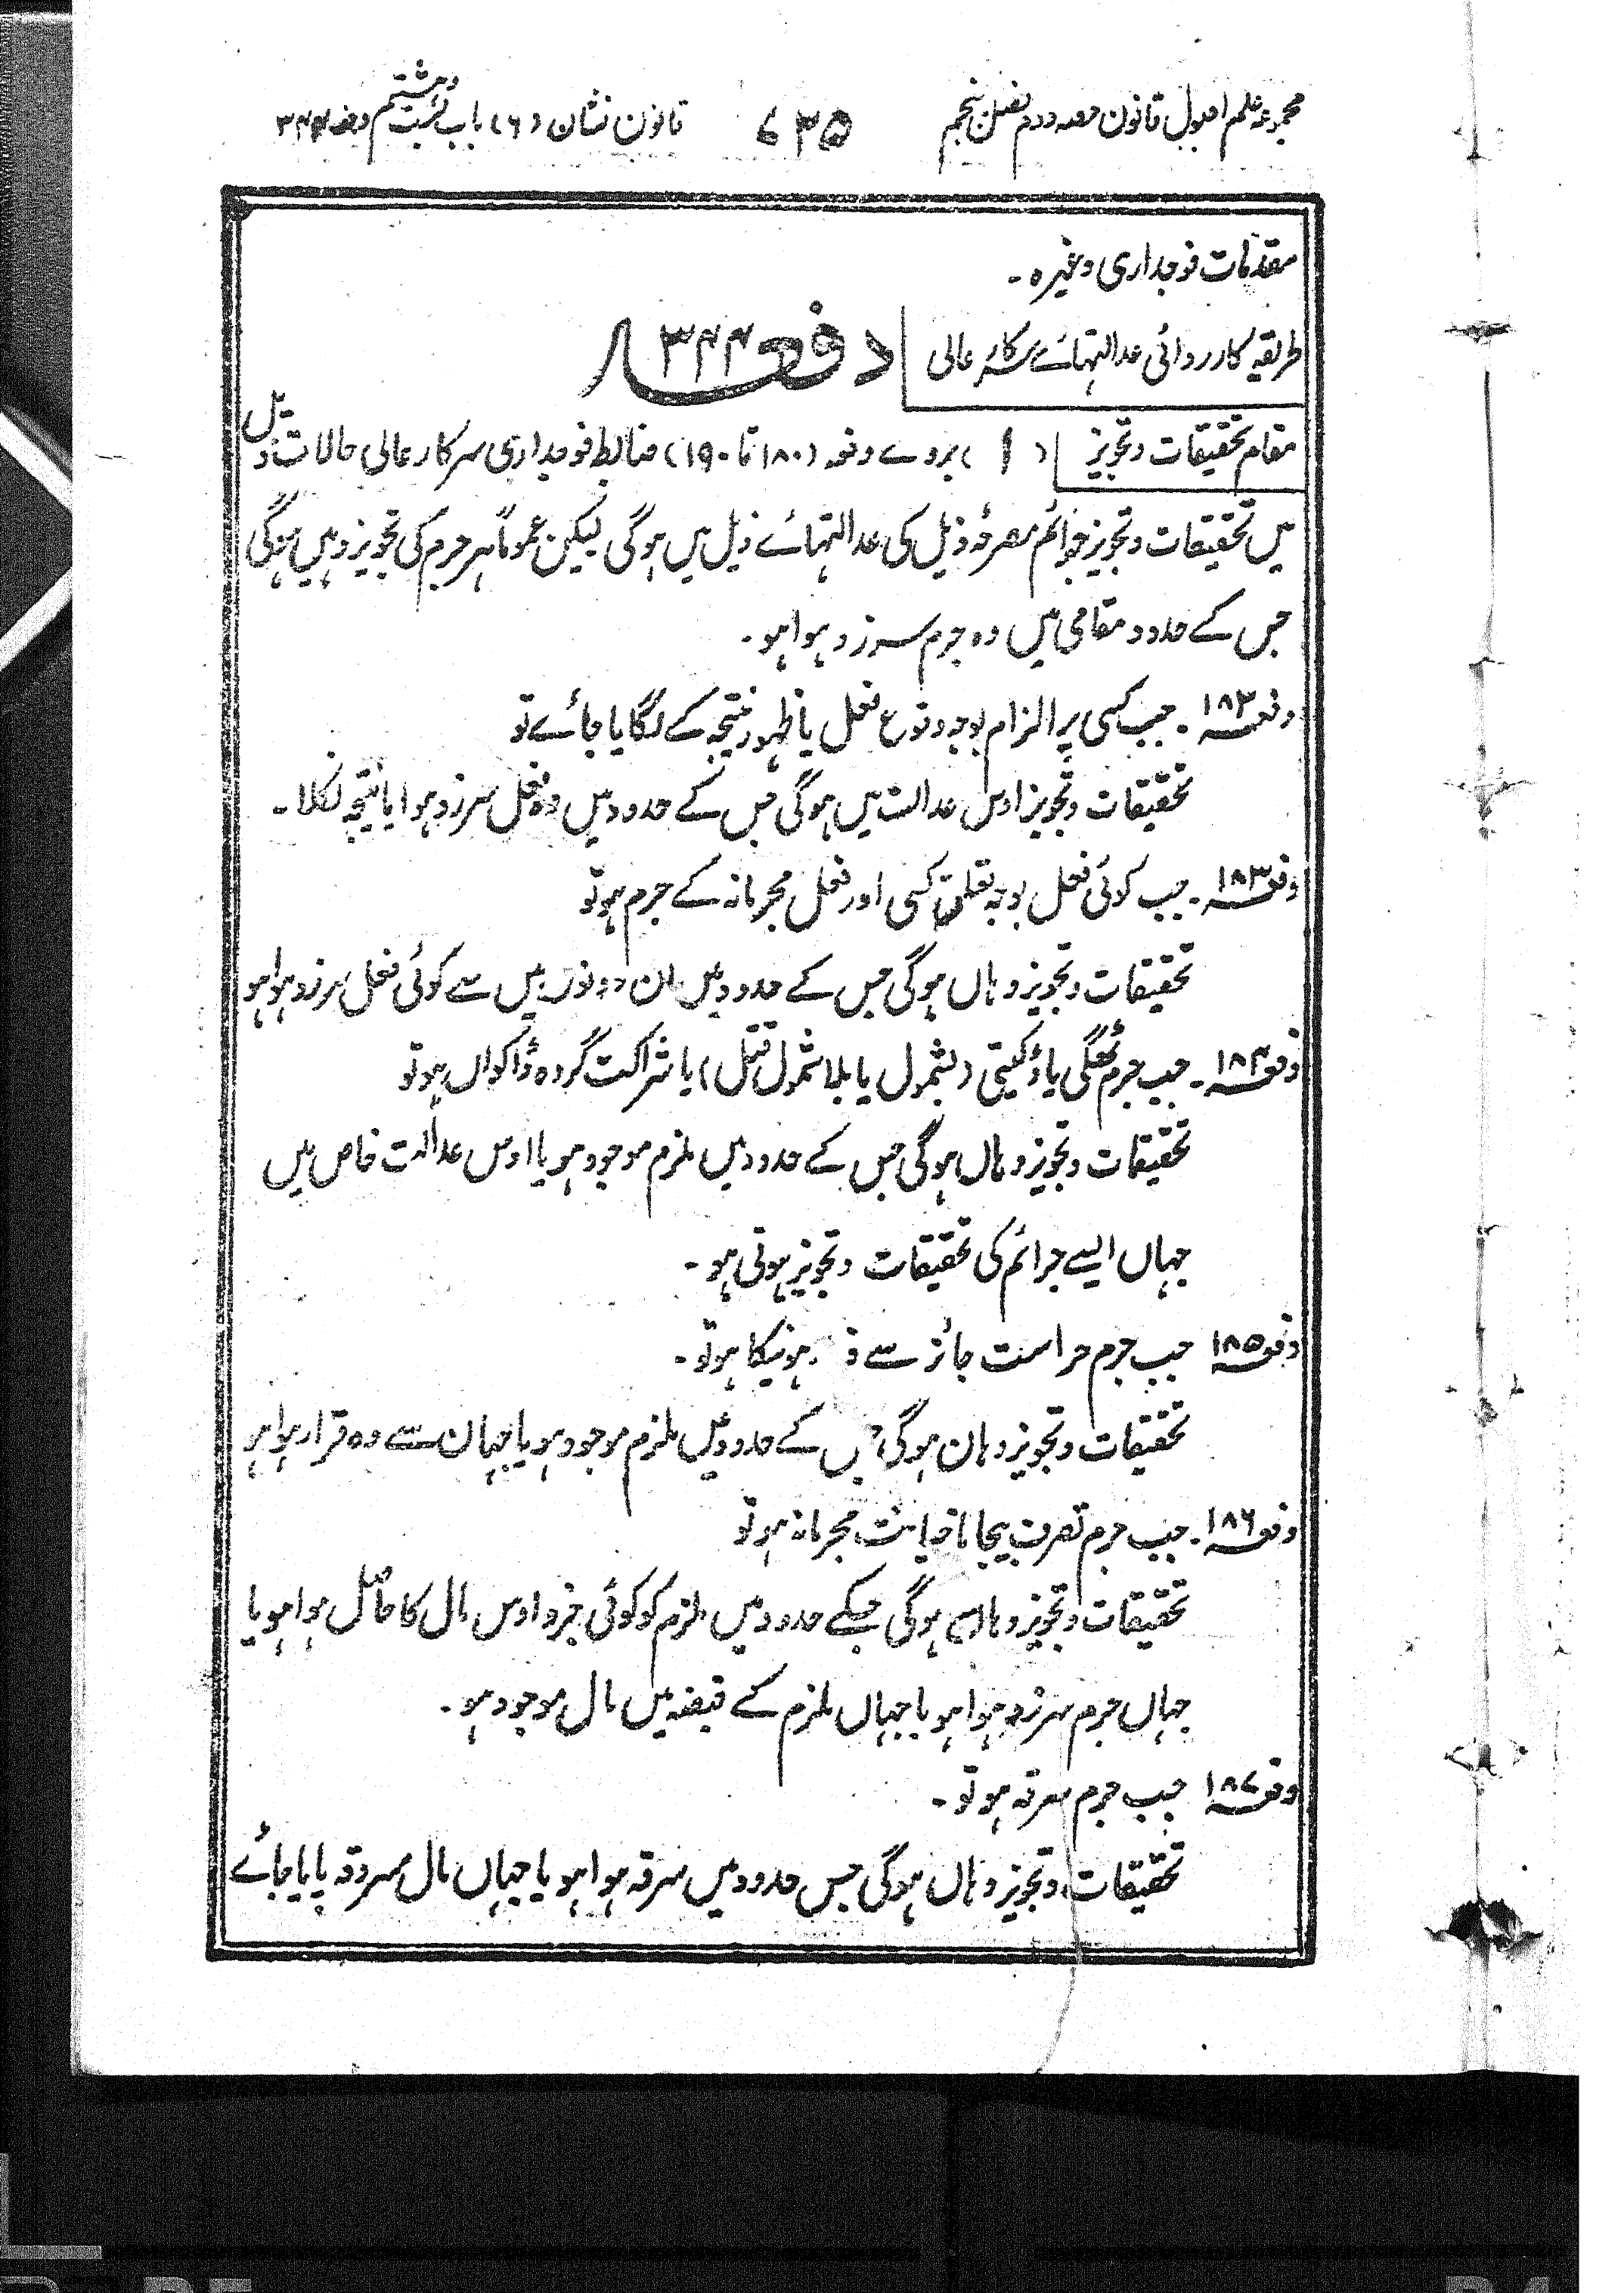 مجموعہ علم اصول قانون حصہ دوم فصل پنجم
۷۳۵
قانون نشان (۶) باب بست وہشتم دفعہ ۳۴۴
مقدمات فوجداری وغیرہ۔
طریقہ کارروائی عدالتہائے سرکار عالی
دفعہ ۳۴۴
مقام تحقیقات وتجویز (۱) بروے دفعہ (۱۸۰ تا ۱۹۰) ضابطہ فوجداری سرکار عالی حالات ذیل
میں تحقیقات وتجویز جرائم مصرحہ ذیل کی عدالتہائے ذیل میں ہوگی لیکن عموماً ہر جرم کی تجویز وہیں ہوگی
جس کے حدود مقامی میں وہ جرم سرزد ہوا ہو۔
دفعہ ۱۸۲۔ جب کسی پر الزام بوجہ وقوع فعل یا ظہور نتیجہ کے لگایا جائے تو
تحقیقات وتجویز اوس عدالت میں ہوگی جس کے حدود میں وہ فعل سرزد ہوا یا نتیجہ نکلا۔
دفعہ ۱۸۳۔ جب کوئی فعل بوجہ تعلق کسی اور فعل مجرمانہ کے جرم ہو تو
تحقیقات وتجویز وہاں ہوگی جس کے حدود میں ان دونوں میں سے کوئی فعل سرزد ہوا ہو
دفعہ ۱۸۴۔ جب جرم ٹھگی یا ڈکیتی (بشمول یا بلا شمول قتل) یا شراکت گروہ ڈاکواں ہو تو
تحقیقات وتجویز وہاں ہوگی جس کے حدود میں ملزم موجود ہو یا اوس عدالت خاص میں
جہاں ایسے جرائم کی تحقیقات وتجویز ہوتی ہو۔
دفعہ ۱۸۵ جب جرم حراست جائز سے ہونیکا ہو تو۔
تحقیقات وتجویز وہان ہوگی جس کے حدود میں ملزم موجود ہو یا جہان سے وہ فرار ہوا ہو
دفعہ ۱۸۶۔ جب جرم تصرف بیجا یا خیانت مجرمانہ ہو تو
تحقیقات وتجویز وہاں ہوگی جسکے حدود میں ملزم کو کوئی جزو اوس مال کا حاصل ہوا ہو یا
جہاں جرم سرزد ہوا ہو یا جہاں ملزم کے قبضہ میں مال موجود ہو۔
دفعہ ۱۸۷ جب جرم سرقہ ہو تو۔
تحقیقات وتجویز وہاں ہوگی جس حدود میں سرقہ ہوا ہو یا جہاں مال مسروقہ پایا جائے